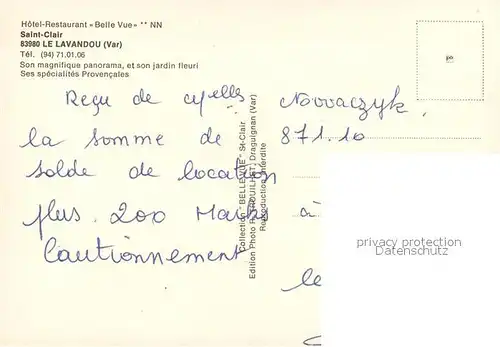 Hôtel-Restaurant «Belle Vue» ** NN
Saint-Clair
83980 LE LAVANDOU (Var)
Tél. (94) 71.01.06
Son magnifique panorama, et son jardin fleuri
Ses spécialités Provençales
Reçu de
la somme de
solde de location
plus 200 Marks
Cautionnement
871.10
à
le
Collection "BELLE VUE" St-Clair
Edition Photo Draguignan (Var)
Reproduction interdite
privacy protection
Datenschutz